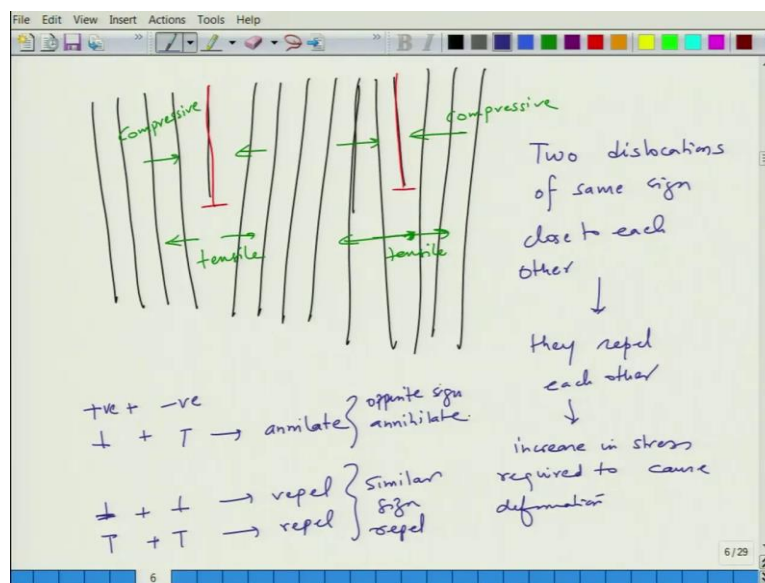 File Edit View Insert Actions Tools Help
B I
compressive
compressive
tensile
tensile
Two dislocations
of same sign
close to each
other
↓
they repel
each other
↓
increase in stress
required to cause
deformation
+ve + -ve
⊥ + T → annilate } opposite sign
annihilate.
⊥ + ⊥ → repel } similar
sign
T + T → repel } repel
6/29
6